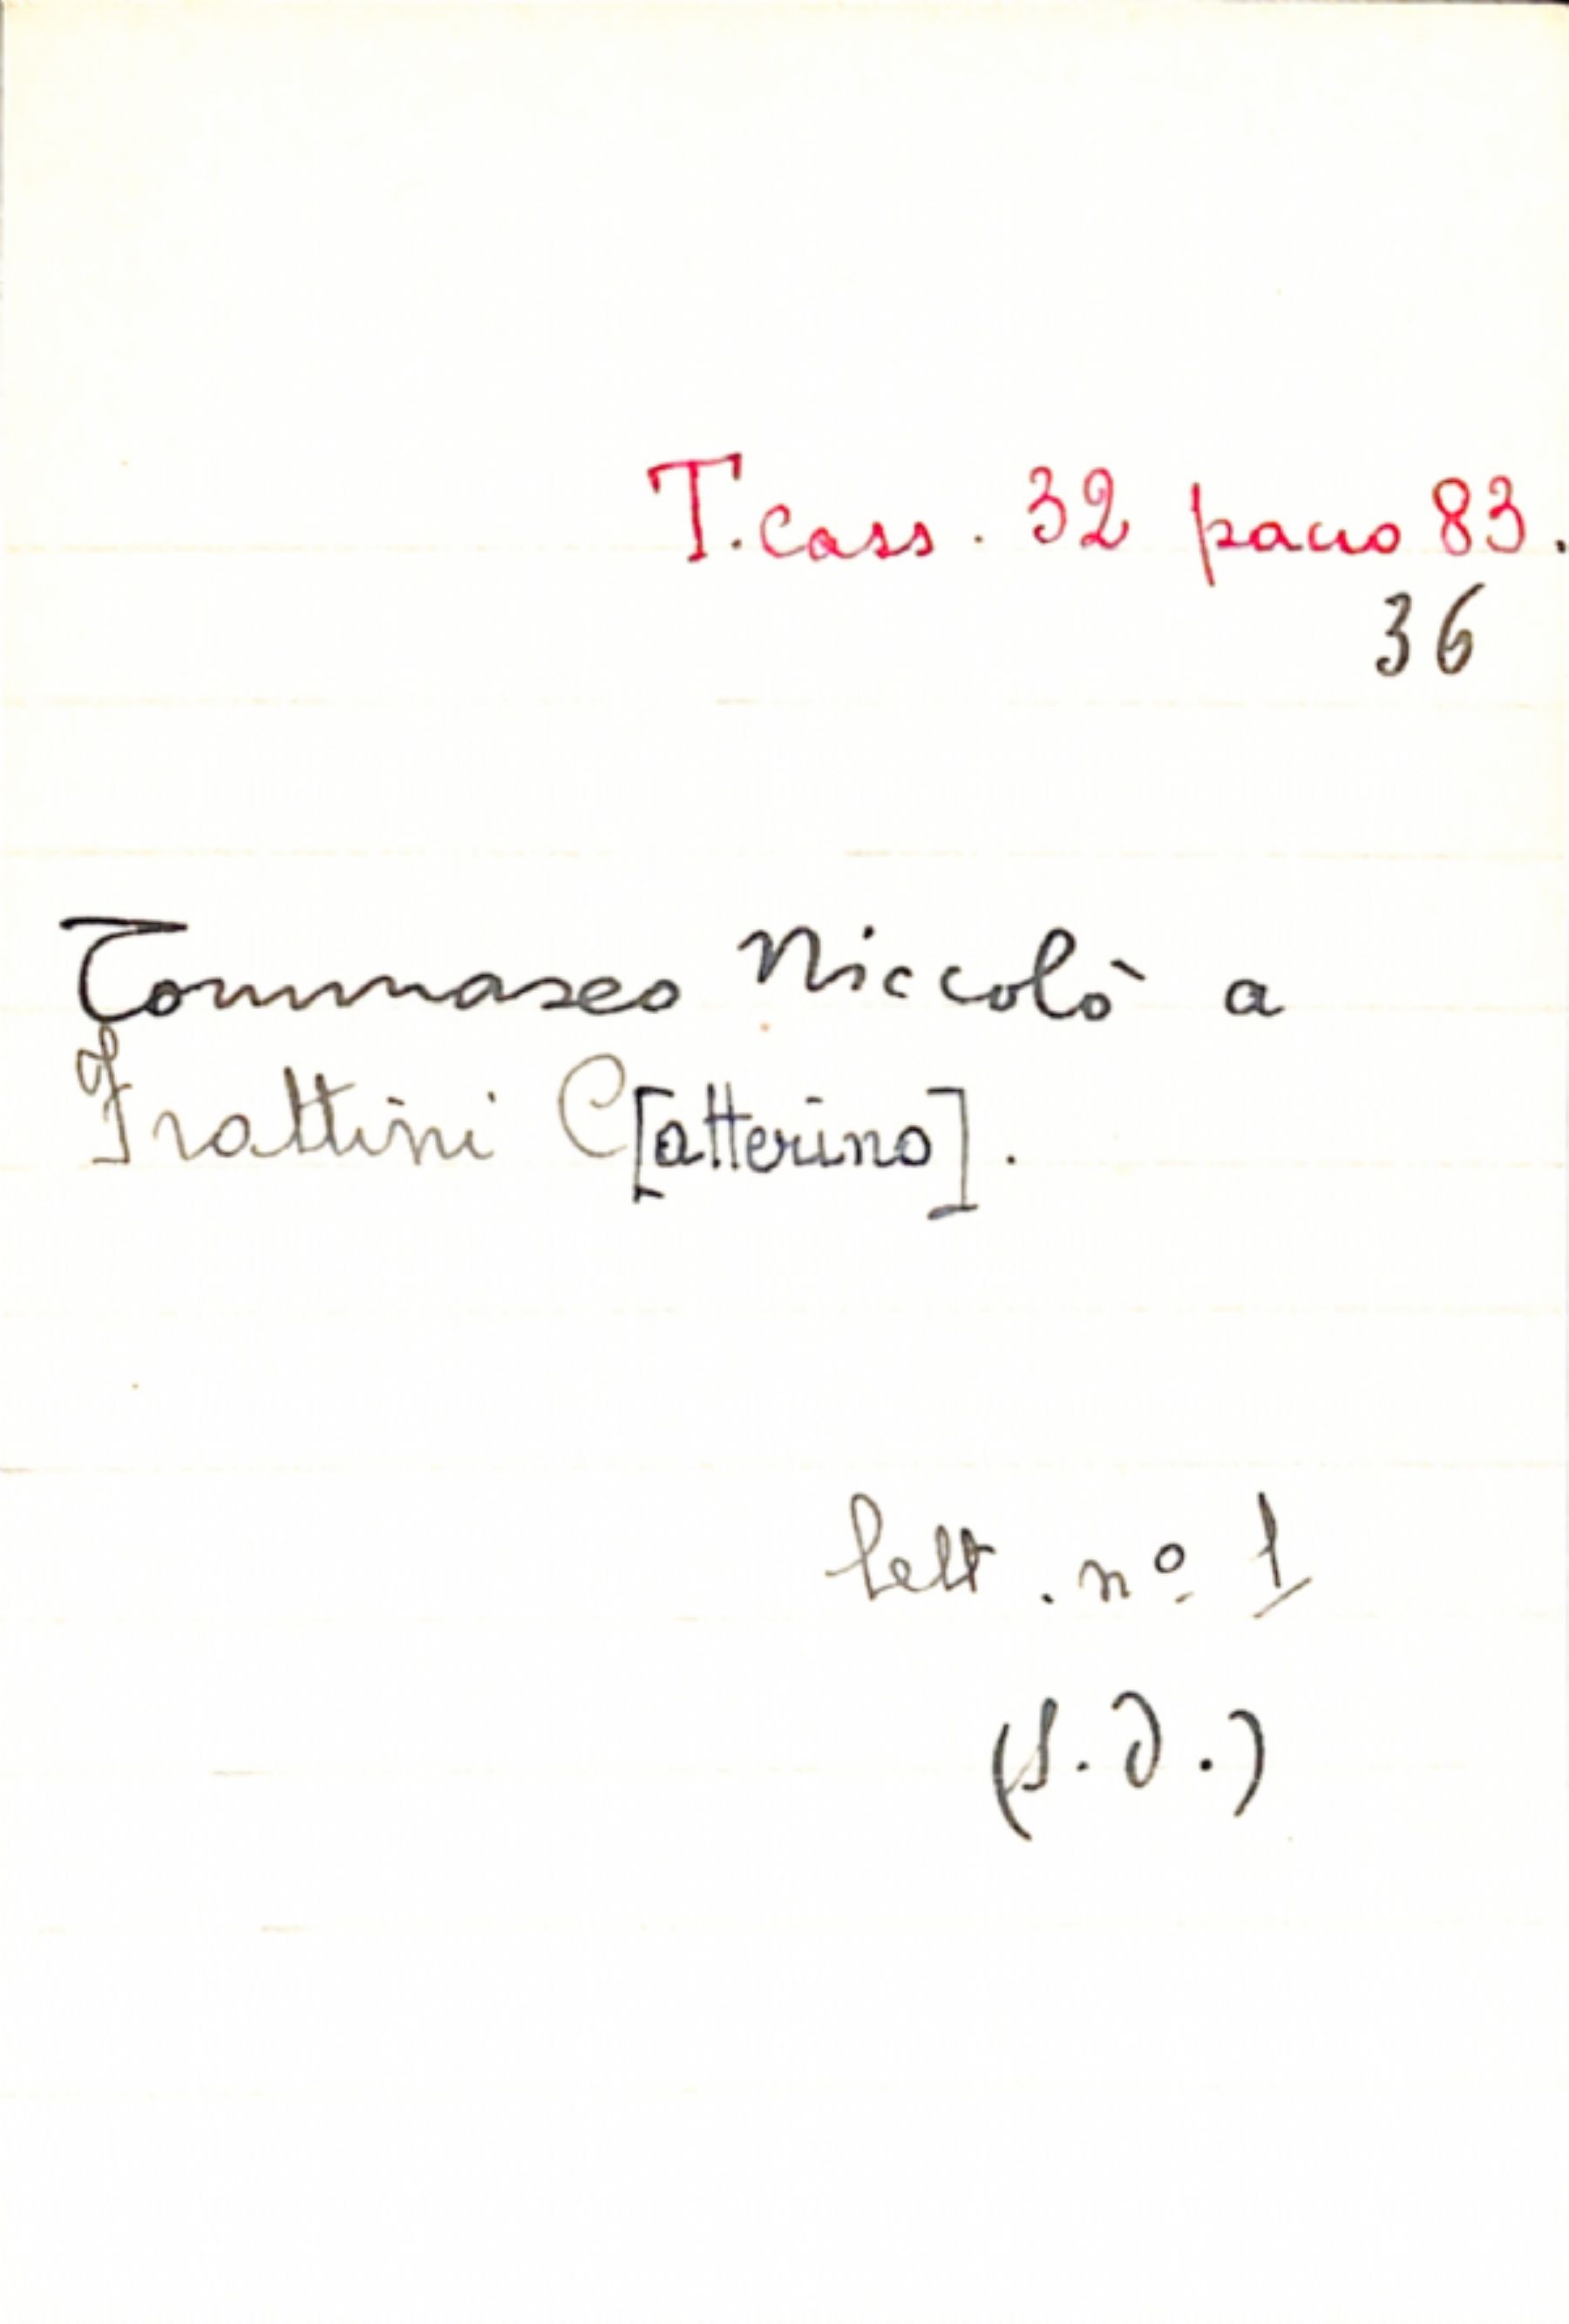 T. cass. 32 pacco 83.
36
Tommaseo Niccolò a
Frattini C[atterino].
lett. nº 1
(s.d.)